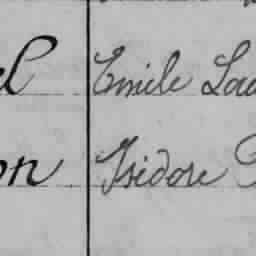 el Emile Lou
on Isidore